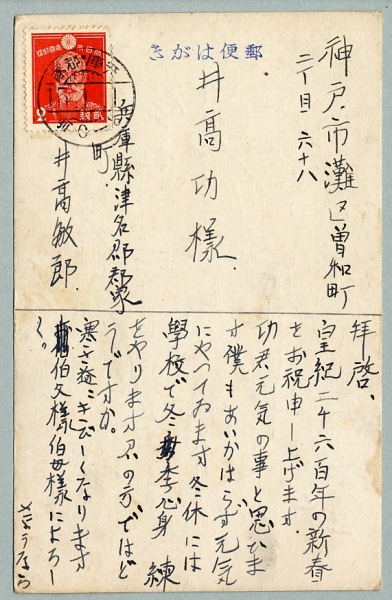 郵便はがき
神戸市灘区曽和町
二丁目六十八
井高功様
兵庫縣津名郡郡家
町
井高敏郎
拝啓、
皇紀二千六百年の新春
をお祝申し上げます
功君元気の事と思ひま
す僕もあいかはらず元気
にやつてゐます冬休には
学校で冬季心身練
をやります君の方ではど
うですか。
寒さ益々きびしくなります
伯父様伯母様によろし
く。
さようなら